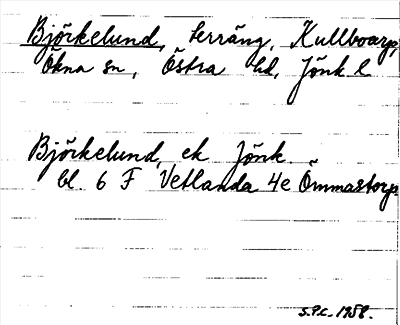 Björkelund, terräng, Kullboarp,
Ökna sn, Östra hd, Jönk l
Björkelund, ek Jönk
bl. 6 F Vetlanda 4e Ömmastorp
S.P.L. 1958.